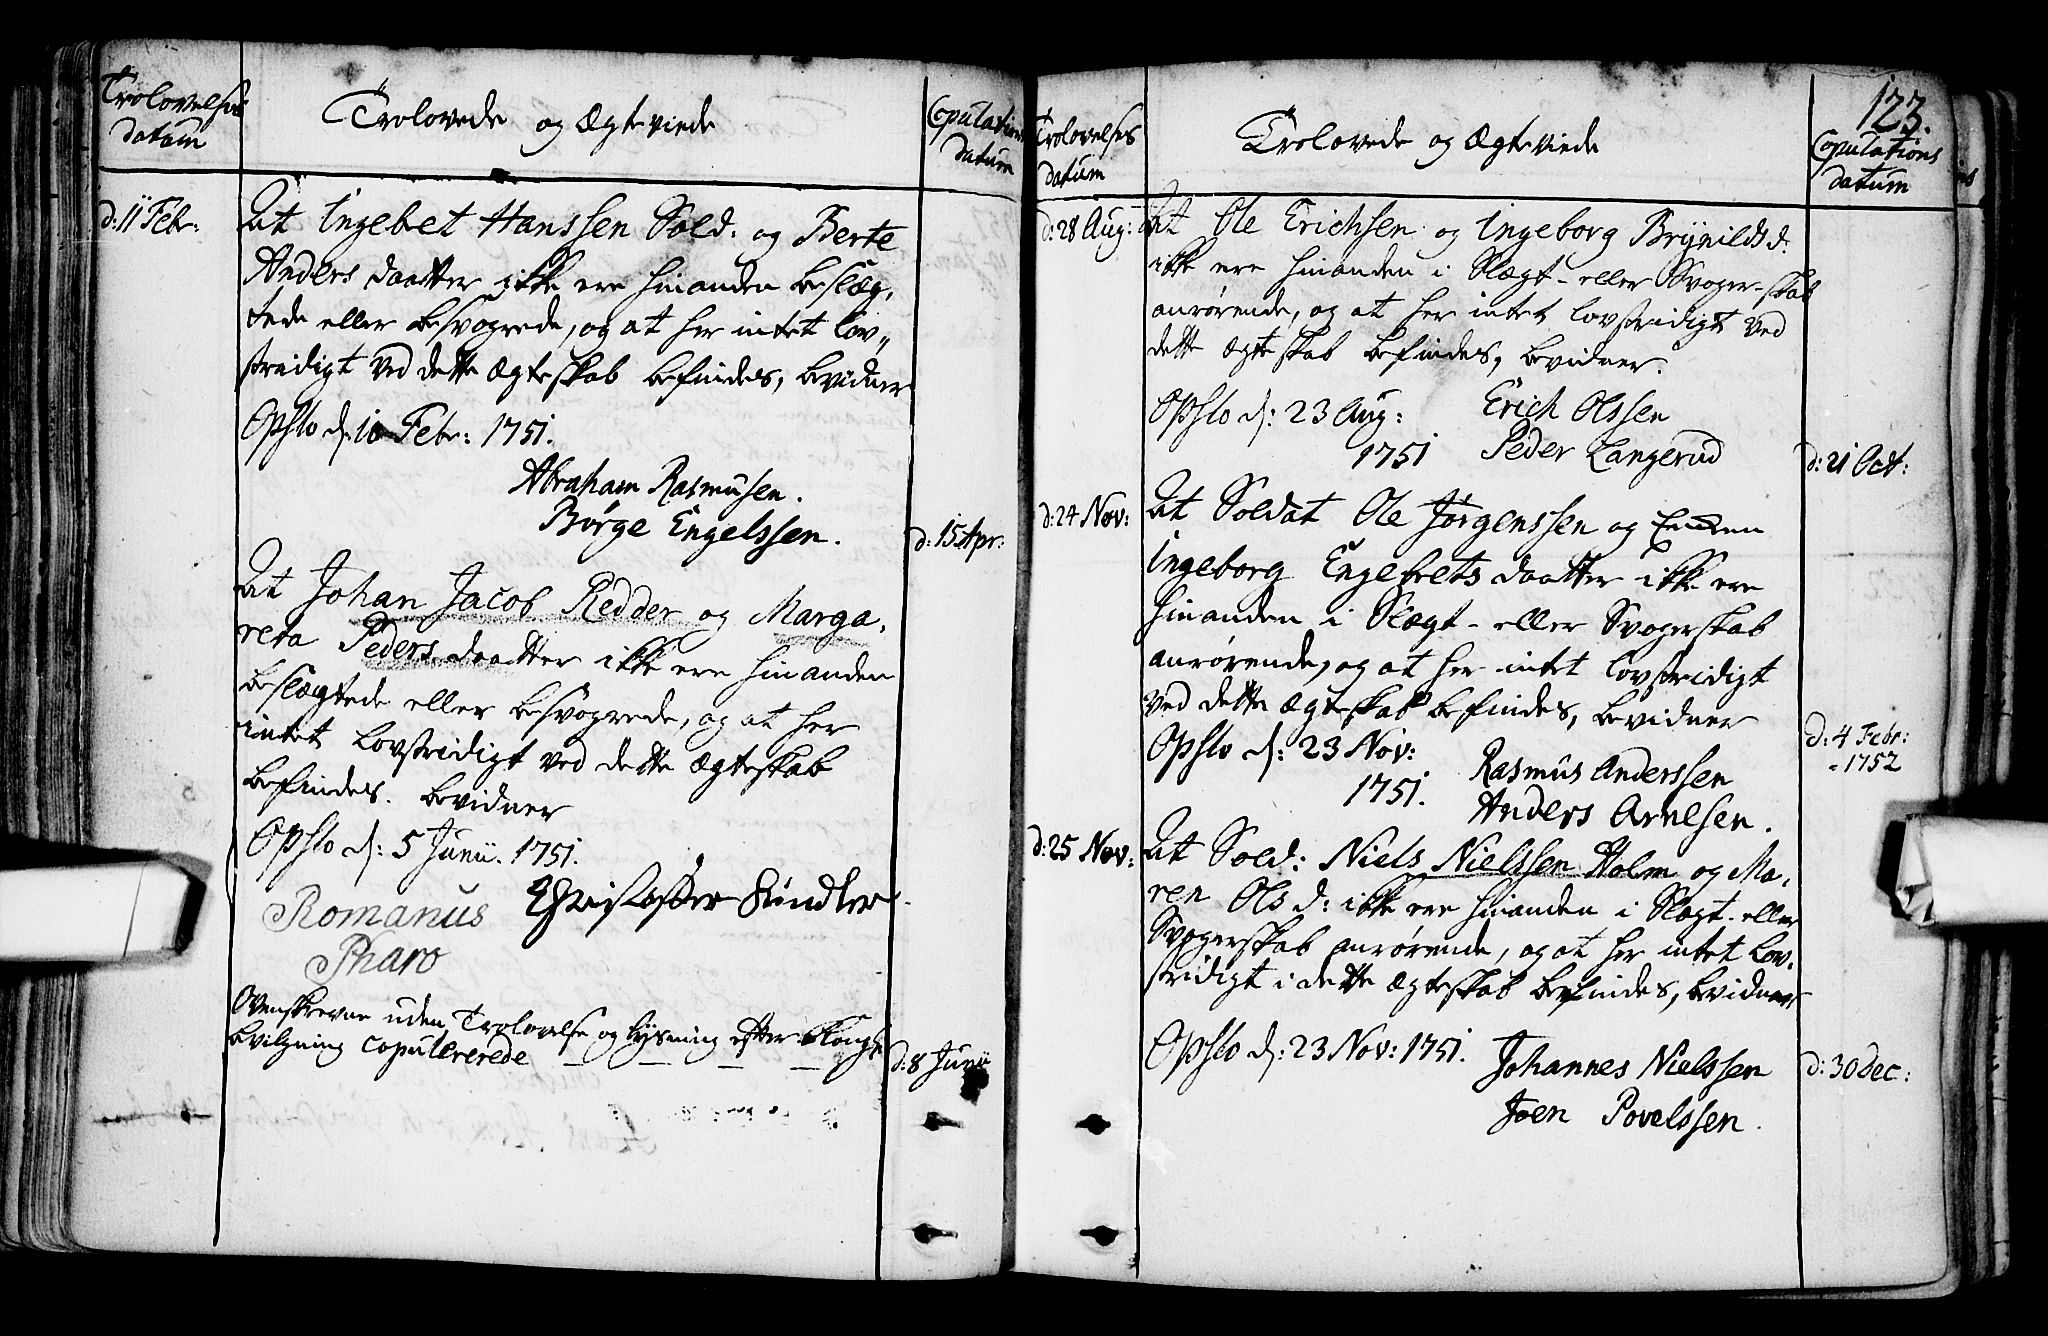 Trolovelses
datum
Trolovede og Ægteviede
Copulations
datum
d: 11 Febr:
At Ingebet Hanssen Sold: og Berte
Anders daatter ikke ere hinanden beslæg,
tede eller besvogrede, og at her intet lov,,
stridigt ved dette Ægteskab befindes, bevidner
Opslo d: 10 Febr: 1751.
Abraham Rasmusen.
Børge Engelssen.
d: 15 Apr:
At Johan Jacob Redder og Marga,
reta Peders daatter ikke ere hinanden
beslægtede eller besvogrede, og at her
intet lovstridigt ved dette Ægteskab
befindes. bevidner
Opslo d: 5 Junii. 1751.
Romanus Christoffer Kindler.
Pharo
Ovenskrevne uden Trolovelse og lysning efter Kongl:
bevilgning copulererede
d: 8 Junii
123.
Trolovelses
datum
Trolovede og Ægteviede
Copulations
datum
d: 28 Aug:
At Ole Erichsen og Ingeborg Brynilds d:
ikke ere hinanden i Slægt- eller Svoger-skab
anrørende, og at her intet lovstridigt ved
dette Ægteskab befindes, bevidner.
Opslo d: 23 Aug: Erich Olssen
1751 Peder Langerud
d: 21 Oct:
d: 24 Nov:
At Soldat Ole Jørgenssen og Enken
Ingeborg Engebrets daatter ikke ere
hinanden i Slægt- eller Svogerskab
anrørende, og at her intet lovstridigt
ved dette Ægteskab befindes, bevidner
Opslo d: 23 Nov: Rasmus Anderssen
1751. Anders Arnesen.
d: 4 Febr:
1752
d: 25 Nov:
At Sold: Niels Nielssen Holm og Ma,
ren Ols d: ikke ere hinanden i Slægt- eller
Svogerskab anrørende, og at her intet lov,
stridigt i dette Ægteskab befindes, bevidner
Opslo d: 23 Nov: 1751. Johannes Nielssen
Joen Povelssen.
d: 30 Dec: